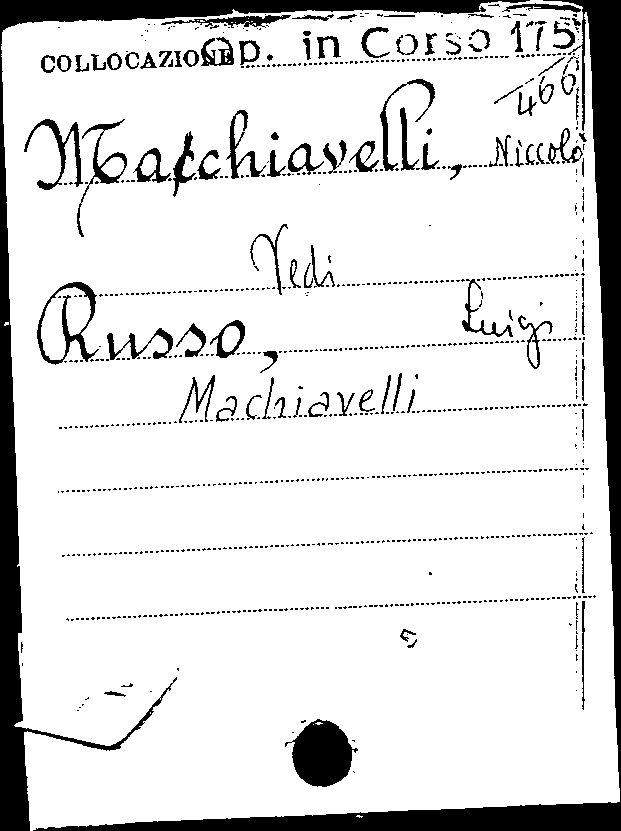 COLLOCAZIONE Op. in Corso 175
466
Macchiavelli, Niccolò
Vedi
Russo, Luigi
Machiavelli